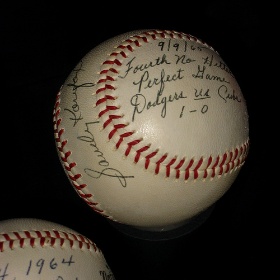 9/9/65
Fourth No Hitter
Perfect Game
Dodgers vs Cubs
1-0
Sandy Koufax
1964